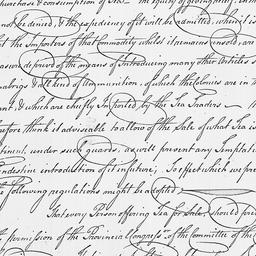 purchase & consumption of Tea. The equity of giving
not be denied, & the expediency of it will be admitted, when it is
the Importers of that commodity whilst it remains unsold, are
deprived of the means of Introducing many other Articles
& that kind of communion, of which the Colonies are in
& which are chiefly Imported, by the Tea Traders
think it adviseable to allow of the Sale of what Tea is
under such guards, as will prevent any Temptation
introduction of it in future; To effect which we
following regulations might be accepted
That every Person offering Tea for Sale, should
Permission of the Provincial Congress, or the committee of the